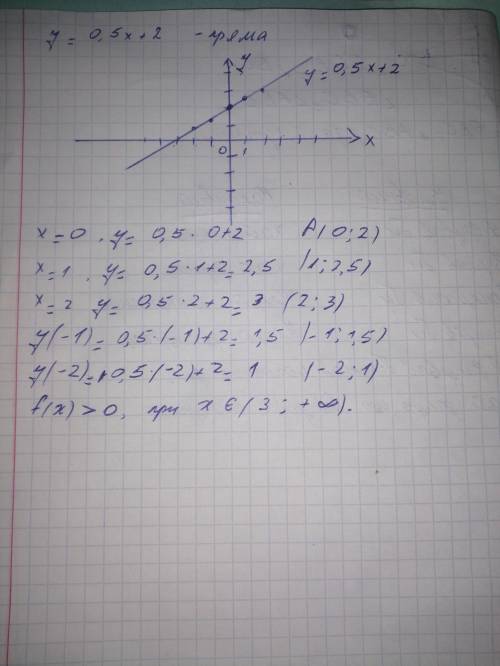 y = 0,5x+2 - пряма
y
y = 0,5x+2
0 1 x
x=0, y= 0,5·0+2 A(0;2)
x=1, y= 0,5·1+2=2,5 (1;2,5)
x=2 y= 0,5·2+2=3 (2;3)
y(-1)= 0,5·(-1)+2=1,5 (-1;1,5)
y(-2)= 0,5·(-2)+2= 1 (-2;1)
f(x)>0, при x∈(3;+∞).